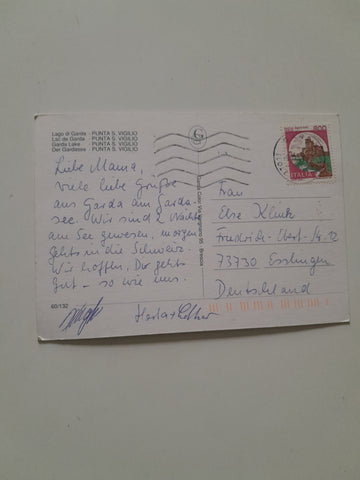 Lago di Garda - PUNTA S. VIGILIO
Lac de Garda - PUNTA S. VIGILIO
Garda Lake - PUNTA S. VIGILIO
Der Gardasee - PUNTA S. VIGILIO
Liebe Mama,
viele liebe Grüße
aus Garda am Garda-
see. Wir sind 2 Nächte
am See gewesen, morgen
gehts in die Schweiz.
Wir hoffen, Dir geht's
gut - so wie uns.
60/132
G
ITALIA
800
Frau
Else Klink
Friedrich-Ebert-Str. 12
73730 Esslingen
Deutschland